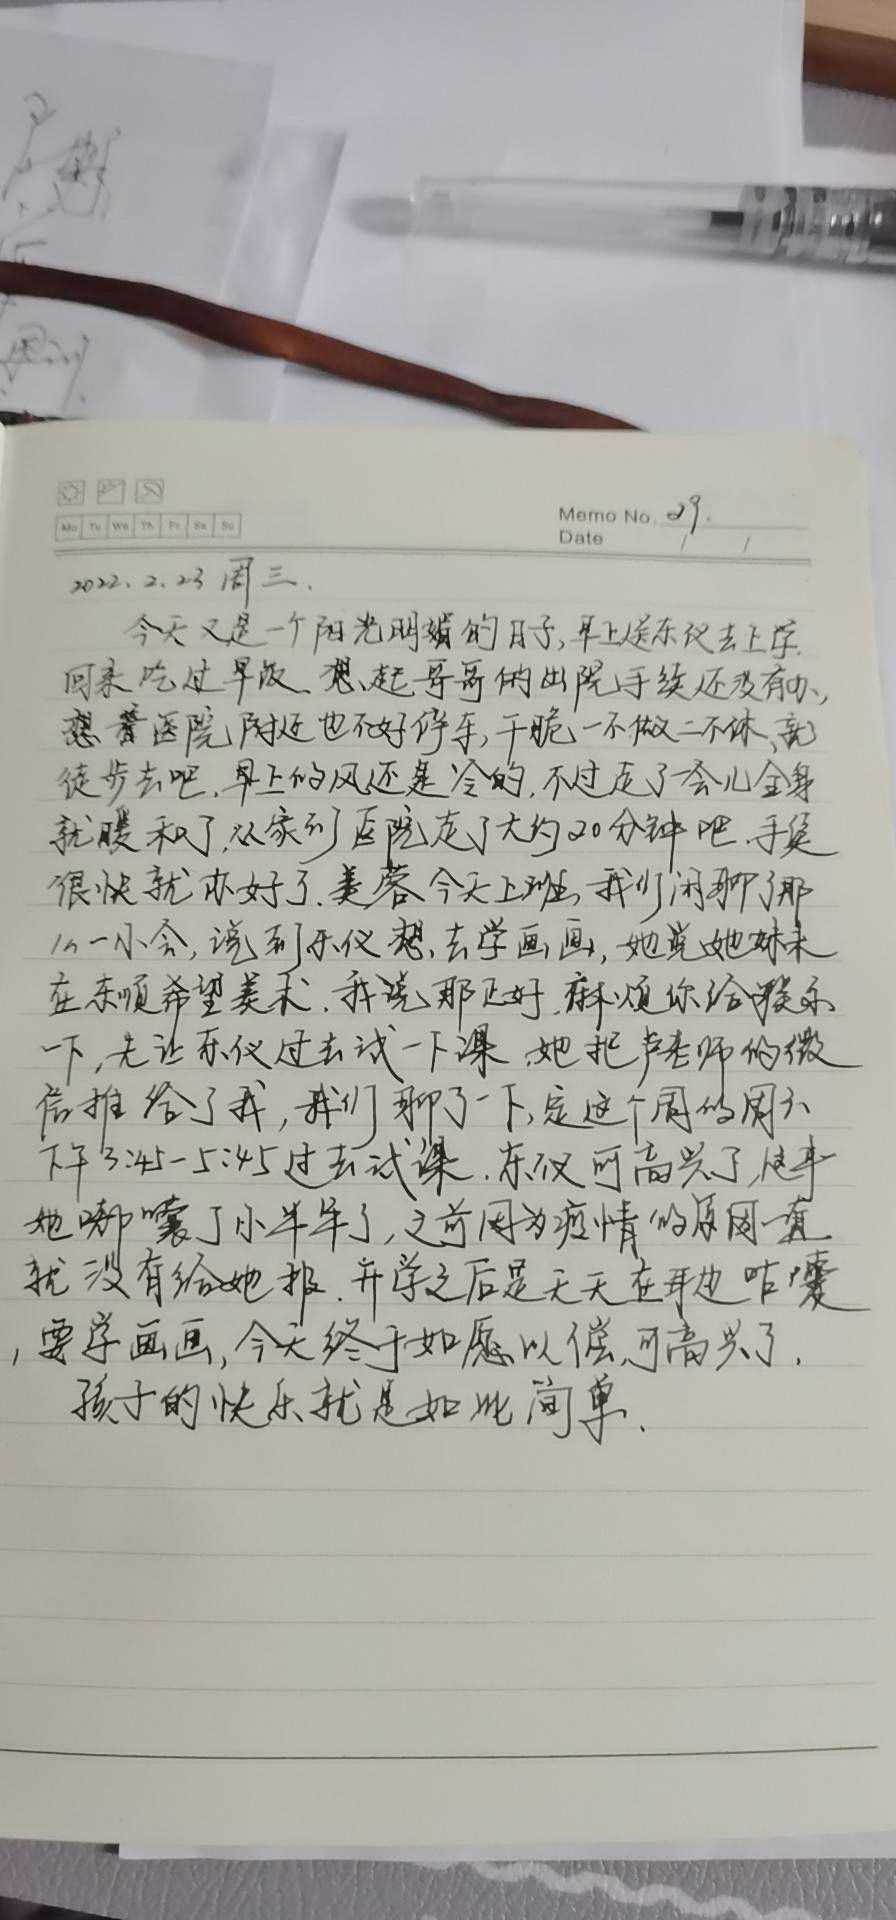 Mo Tu We Th Fr Sa Su
Memo No. 29.
Date / /
2022.2.23 周三.
今天又是一个阳光明媚的日子,早上送乐仪去上学.
回来吃过早饭、想起哥哥的出院手续还没有办,
想着医院附近也不好停车,干脆一不做二不休、就
徒步去吧.早上的风还是冷的,不过走了一会儿全身
就暖和了,从家到医院走了大约20分钟吧.手续
很快就办好了.美蓉今天上班,我们闲聊了那
么一小会,说到乐仪想去学画画,她说她妹未
在东顺希望美术.我说那正好.麻烦你给联系
一下,先让乐仪过去试一下课.她把卢老师的微
信推给了我,我们聊了一下,定这个周的周六
下午3:45-5:45过去试课.乐仪可高兴了,这事
她嘟囔了小半年了,之前因为疫情的原因一直
就没有给她报.开学之后是天天在耳边咕囔
,要学画画,今天终于如愿以偿,可高兴了.
孩子的快乐就是如此简单.